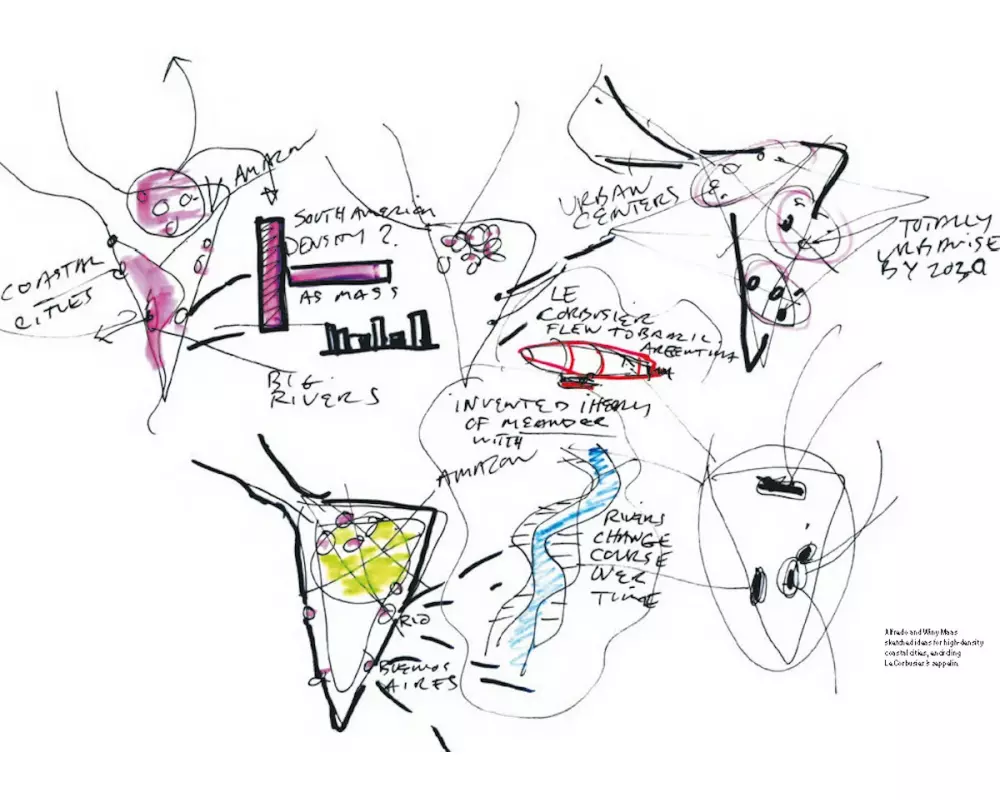 AMAZON
SOUTH AMERICA
DENSITY?
AS MASS
COASTAL
CITIES
BIG
RIVERS
URBAN
CENTERS
TOTALLY
URBANISE
BY 2030
LE
CORBUSIER
FLEW TO BRAZIL,
ARGENTINA
INVENTED THEORY
OF MEANDER
WITH
AMAZON
RIVERS
CHANGE
COURSE
OVER
TIME
RIO
BUENOS
AIRES
Alfredo and Winy Maas
sketched ideas for high-density
coastal cities, encircling
Le Corbusier's zeppelin.